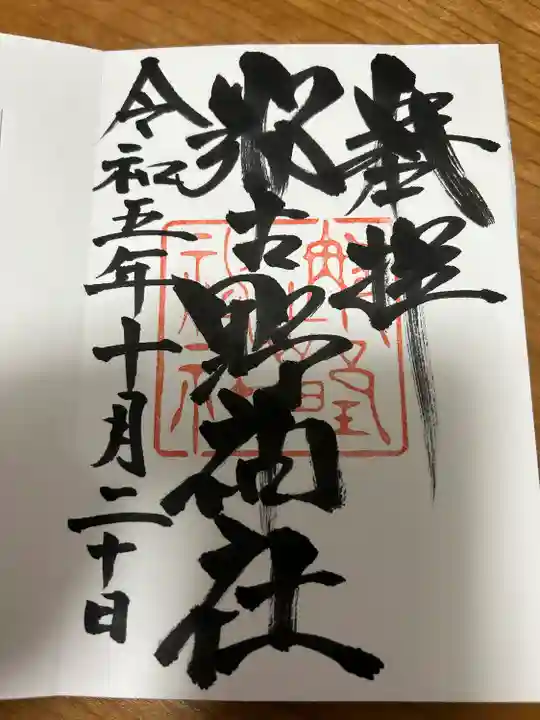 奉拝
古野神社
令和五年十月二十日